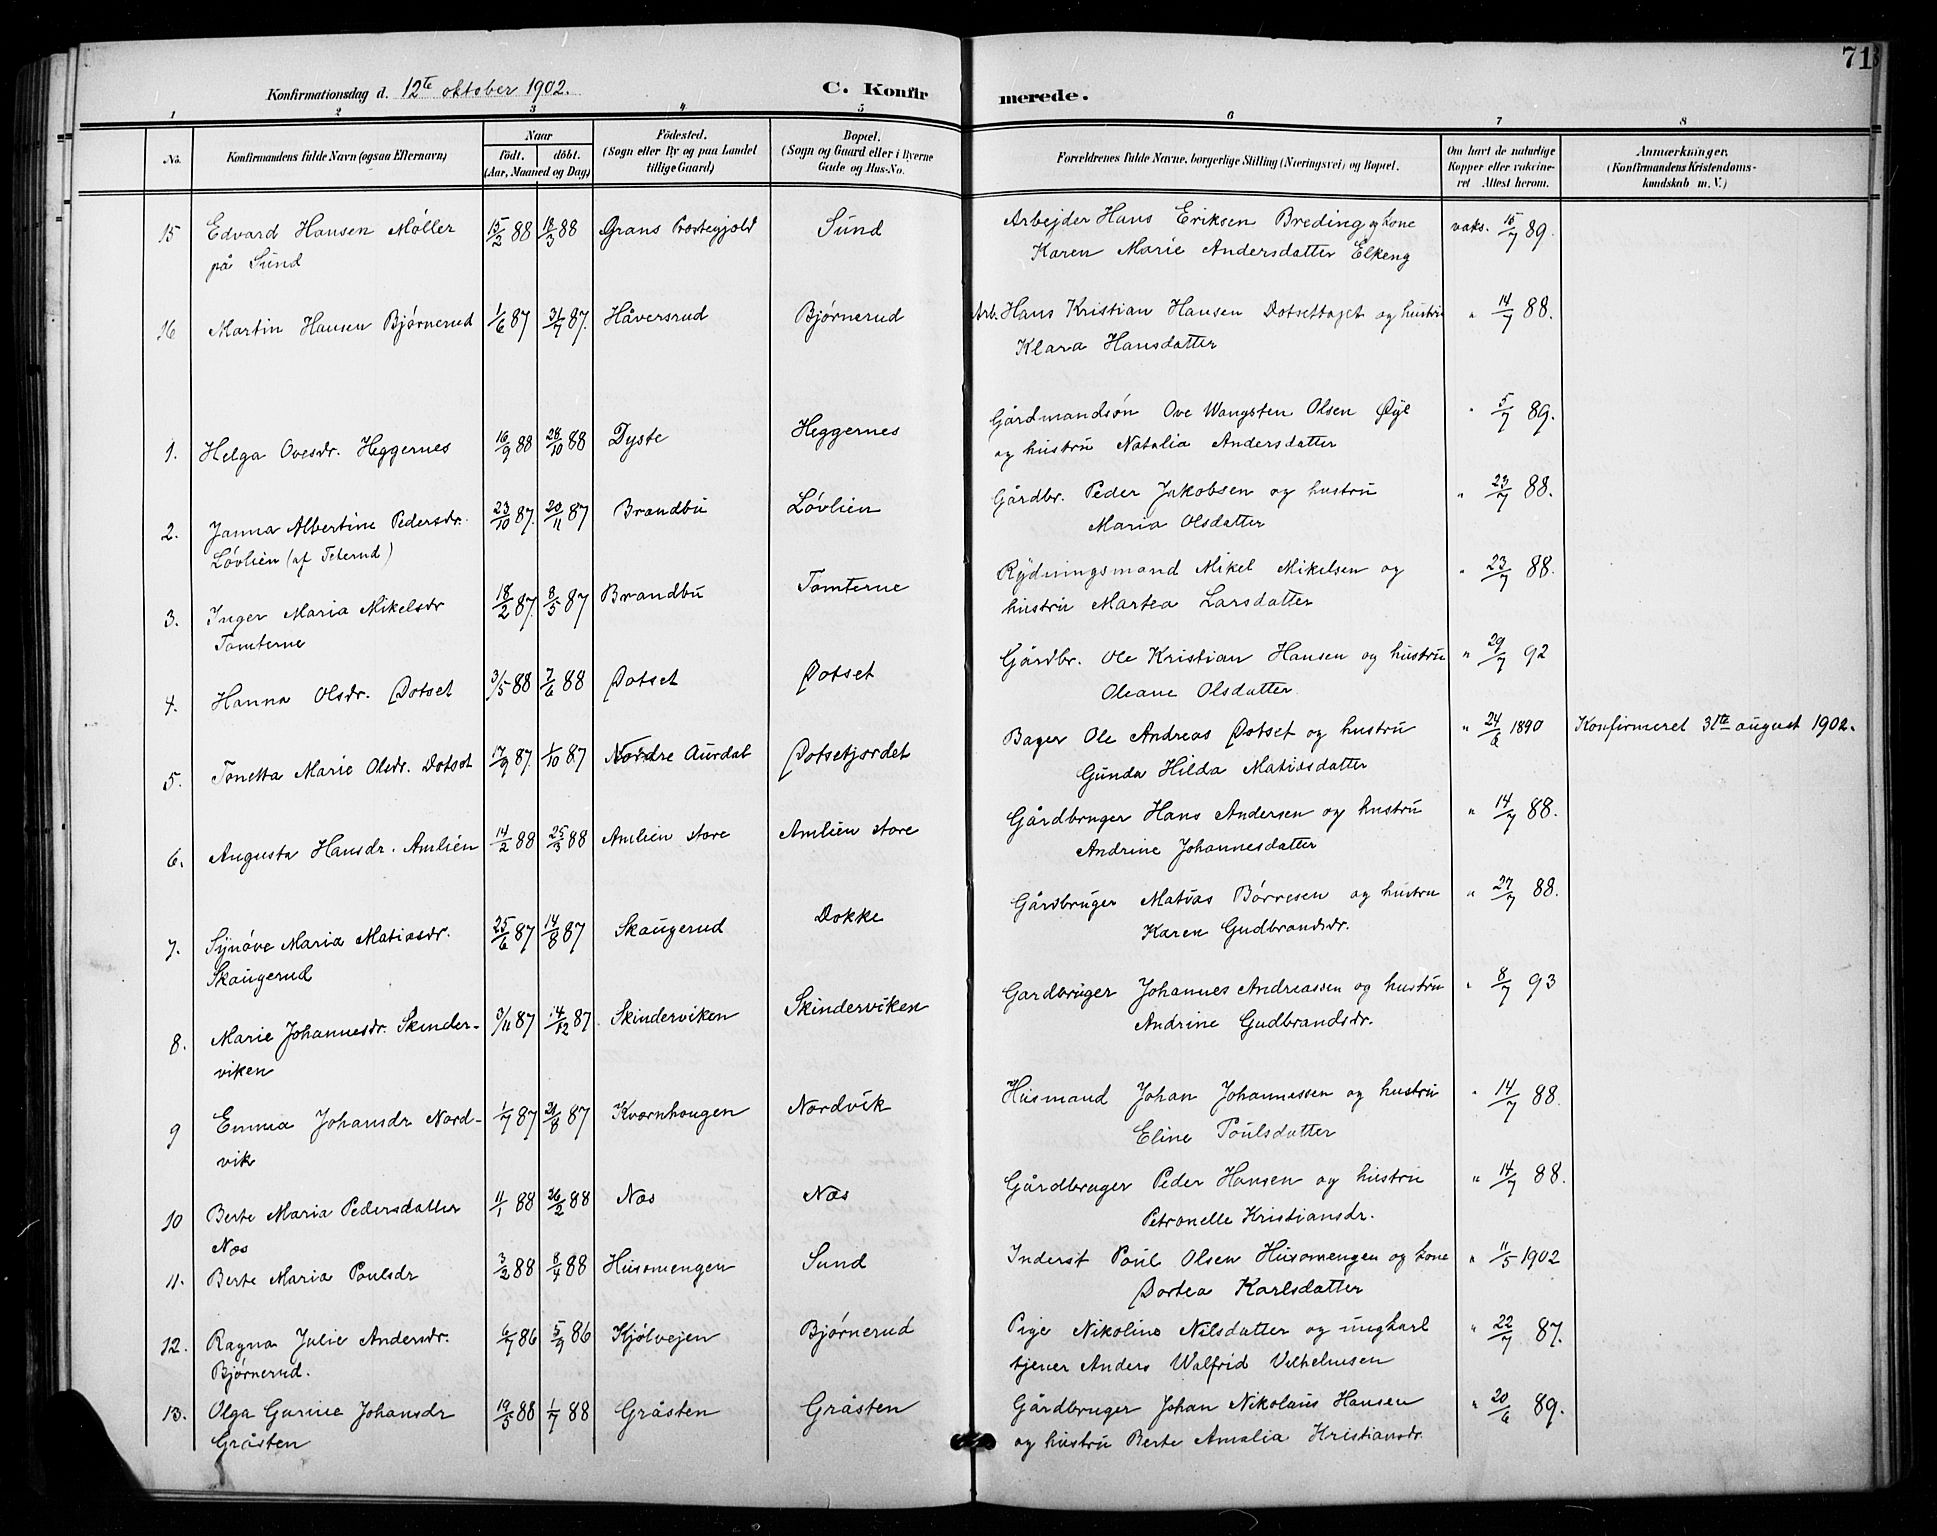 71
Konfirmationsdag d. 12te oktober 1902. C. Konfir merede.
1 2 3 4 5 6 7 8
No. Konfirmandens fulde Navn (ogsaa Efternavn) Naar født. døbt. (Aar, Maaned og Dag) Fødested. (Sogn eller By og paa Landet tillige Gaard) Bopæl. (Sogn og Gaard eller i Byerne Gade og Hus-No. Forældrenes fulde Navne, borgerlige Stilling (Næringsvei) og Bopæl. Om havt de naturlige Kopper eller vaccineret Attest herom. Anmærkninger. (Konfirmandens Kristendomskundskab m. V.)
15 Edvard Hansen Møller 15/2 88 18/3 88 Grans Sund Arbejder Hans Eriksen Breding og kone vaks. 15/7 89.
på Sund Karen Marie Andersdatter Elkeng
16 Martin Hansen Bjørnerud 1/6 87 31/7 87. Håversrud Bjørnerud Arb. Hans Kristian Hansen og hustru " 14/7 88.
Klara Hansdatter
1. Helga Ovesdr. Heggernes 16/9 88 28/10 88 Dyste Heggernes Gårdmandsøn Ove Wangsten Olsen Øyl " 5/7 89.
og hustru Natalia Andersdatter
2. Janna Albertine Pedersdr. 23/10 87. 20/11 87 Brandbu Løvlien Gårdbr. Peder Jakobsen og hustru " 23/7 88.
Løvlien (af Teterud) Maria Olsdatter
3. Inger Maria Mikelsdr 18/2 87. 8/5 87 Brandbu Tomterne Rydningsmand Mikel Mikelsen og " 23/7 88.
Tomterne hustru Martea Larsdatter
4. Hanna Olsdr. Dotset 3/5 88 7/6 88 Dotset Dotset Gårdbr. Ole Kristian Hansen og hustru " 29/7 92
Oleane Olsdatter
5. Tonetta Marie Olsdr. Dotset 17/9 87. 1/10 87 Nordre Aurdal Dotsetjordet Bager Ole Andreas Dotset og hustru " 24/6 1890 Konfirmeret 31te august 1902.
Gunda Hilda Matiasdatter
6. Augusta Hansdr. Amlien 14/2 88 25/3 88 Amlien store Amlien store Gårdbruger Hans Andersen og hustru " 14/7 88.
Andrine Johannesdatter
7. Synøve Maria Matiasdr. 25/6 87 14/8 87 Skaugerud Dokke Gårdbruger Matias Børresen og hustru " 27/7 88.
Skaugerud Karen Gudbrandsdr.
8. Marie Johannesdr. Skinder- 3/11 87 14/12 87. Skinderviken Skinderviken Gardbruger Johannes Andreassen og hustru " 8/7 93
viken Andrine Gudbrandsdr.
9 Emma Johansdr Nord- 1/7 87 21/8 87 Kvernhaugen Nordvik Husmand Johan Johannessen og hustru " 14/7 88.
vik Eline Poulsdatter
10 Berte Maria Pedersdatter 11/1 88 26/2 88 Næs Næs Gårdbruger Peder Hansen og hustru " 14/7 88.
Næs Petronelle Kristiansdr.
11. Berte Maria Poulsdr 3/2 88 8/4 88 Husomengen Sund Inderst Poul Olsen Husomengen og kone " 11/5 1902
Dortea Karlsdatter
12. Ragna Julie Andersdr. 6/7 86 5/9 86 Kjølvejen Bjørnerud Pige Nikoline Nilsdatter og ungkarl " 22/7 87.
Bjørnerud. tjener Anders Walfrid Vilhelmsen
13. Olga Gurine Johansdr 19/5 88 1/7 88 Gråsten Gråsten Gårdbruger Johan Nikolaus Hansen " 20/6 89.
Gråsten og hustru Berte Amalia Kristiansdr.